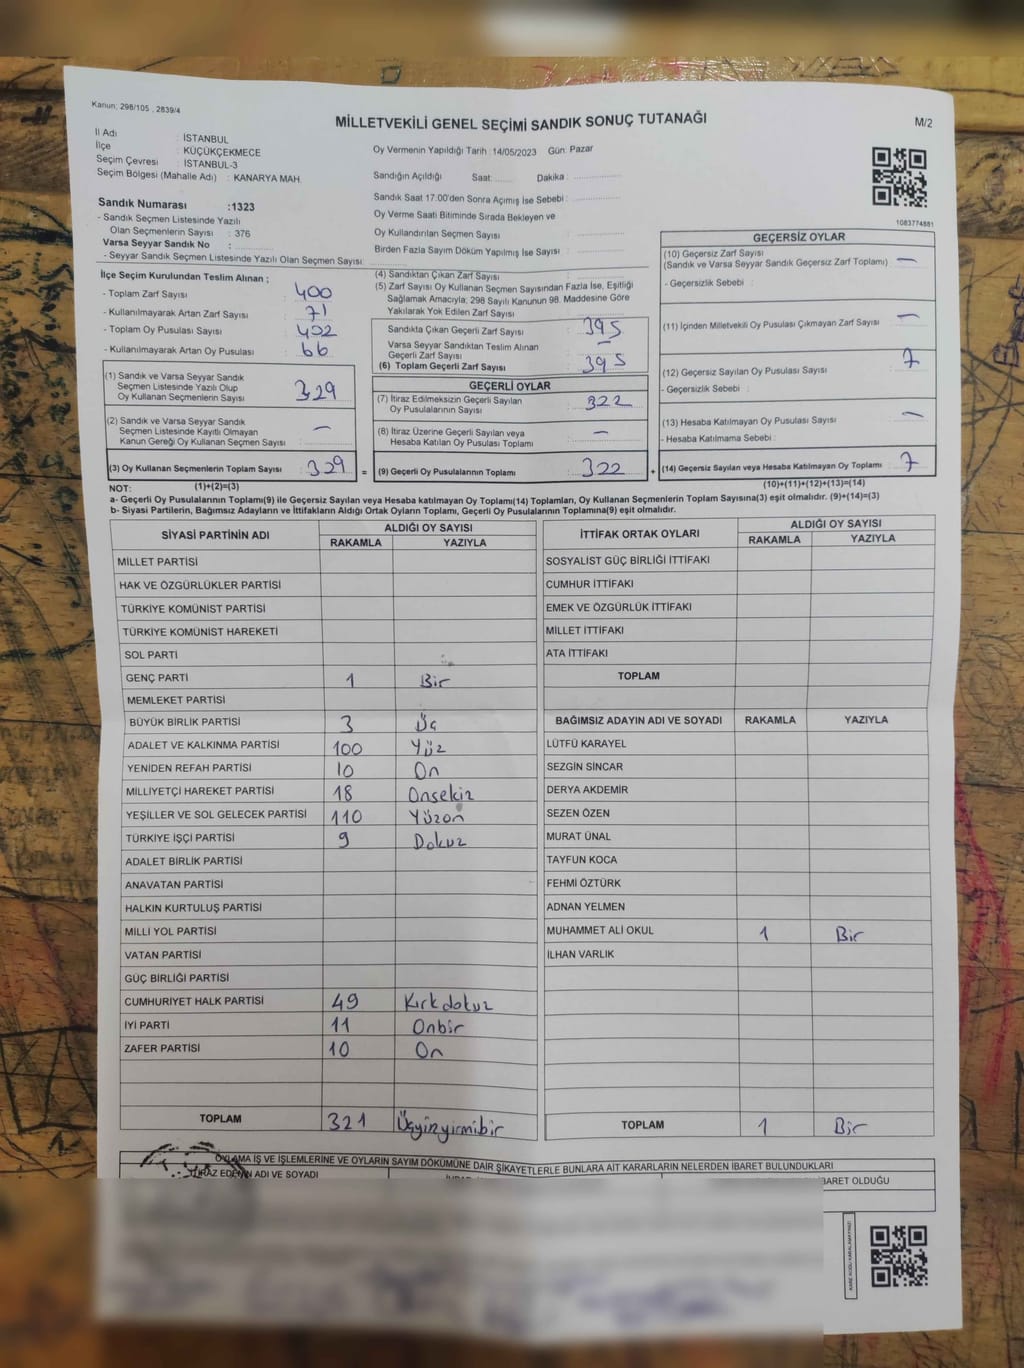 Kanun: 298/105 , 2839/4
MİLLETVEKİLİ GENEL SEÇİMİ SANDIK SONUÇ TUTANAĞI
M/2
İl Adı : İSTANBUL
İlçe : KÜÇÜKÇEKMECE
Seçim Çevresi : İSTANBUL-3
Seçim Bölgesi (Mahalle Adı) : KANARYA MAH.
Oy Vermenin Yapıldığı Tarih : 14/05/2023 Gün: Pazar
Sandığın Açıldığı Saat: ...... Dakika : ..............
Sandık Saat 17.00'den Sonra Açımış İse Sebebi : ..............
Oy Verme Saati Bitiminde Sırada Bekleyen ve
Oy Kullandırılan Seçmen Sayısı : ..............
Birden Fazla Sayım Döküm Yapılmış İse Sayısı : ..............
1083774881
Sandık Numarası :1323
- Sandık Seçmen Listesinde Yazılı
Olan Seçmenlerin Sayısı : 376
Varsa Seyyar Sandık No : ..........
- Seyyar Sandık Seçmen Listesinde Yazılı Olan Seçmen Sayısı: ..........
İlçe Seçim Kurulundan Teslim Alınan ;
- Toplam Zarf Sayısı : 400
- Kullanılmayarak Artan Zarf Sayısı : 71
- Toplam Oy Pusulası Sayısı : 402
- Kullanılmayarak Artan Oy Pusulası : 66
(1) Sandık ve Varsa Seyyar Sandık
Seçmen Listesinde Yazılı Olup
Oy Kullanan Seçmenlerin Sayısı : 329
(2) Sandık ve Varsa Seyyar Sandık
Seçmen Listesinde Kayıtlı Olmayan
Kanun Gereği Oy Kullanan Seçmen Sayısı : —
(3) Oy Kullanan Seçmenlerin Toplam Sayısı : 329 =
(1)+(2)=(3)
(4) Sandıktan Çıkan Zarf Sayısı : ..........
(5) Zarf Sayısı Oy Kullanan Seçmen Sayısından Fazla İse, Eşitliği
Sağlamak Amacıyla; 298 Sayılı Kanunun 98. Maddesine Göre
Yakılarak Yok Edilen Zarf Sayısı : ..........
Sandıkta Çıkan Geçerli Zarf Sayısı : 395
Varsa Seyyar Sandıktan Teslim Alınan
Geçerli Zarf Sayısı : —
(6) Toplam Geçerli Zarf Sayısı : 395
GEÇERLİ OYLAR
(7) İtiraz Edilmeksizin Geçerli Sayılan
Oy Pusulalarının Sayısı : 322
(8) İtiraz Üzerine Geçerli Sayılan veya
Hesaba Katılan Oy Pusulası Toplamı : —
(9) Geçerli Oy Pusulalarının Toplamı : 322 +
GEÇERSİZ OYLAR
(10) Geçersiz Zarf Sayısı
(Sandık ve Varsa Seyyar Sandık Geçersiz Zarf Toplamı) : —
- Geçersizlik Sebebi :
(11) İçinden Milletvekili Oy Pusulası Çıkmayan Zarf Sayısı : —
(12) Geçersiz Sayılan Oy Pusulası Sayısı : 7
- Geçersizlik Sebebi :
(13) Hesaba Katılmayan Oy Pusulası Sayısı : —
- Hesaba Katılmama Sebebi :
(14) Geçersiz Sayılan veya Hesaba Katılmayan Oy Toplamı : 7
(10)+(11)+(12)+(13)=(14)
NOT:
a- Geçerli Oy Pusulalarının Toplamı(9) ile Geçersiz Sayılan veya Hesaba katılmayan Oy Toplamı(14) Toplamları, Oy Kullanan Seçmenlerin Toplam Sayısına(3) eşit olmalıdır. (9)+(14)=(3)
b- Siyasi Partilerin, Bağımsız Adayların ve İttifakların Aldığı Ortak Oyların Toplamı, Geçerli Oy Pusulalarının Toplamına(9) eşit olmalıdır.
SİYASİ PARTİNİN ADI
ALDIĞI OY SAYISI
RAKAMLA YAZIYLA
MİLLET PARTİSİ
HAK VE ÖZGÜRLÜKLER PARTİSİ
TÜRKİYE KOMÜNİST PARTİSİ
TÜRKİYE KOMÜNİST HAREKETİ
SOL PARTİ
GENÇ PARTİ 1 Bir
MEMLEKET PARTİSİ
BÜYÜK BİRLİK PARTİSİ 3 Üç
ADALET VE KALKINMA PARTİSİ 100 Yüz
YENİDEN REFAH PARTİSİ 10 On
MİLLİYETÇİ HAREKET PARTİSİ 18 Onsekiz
YEŞİLLER VE SOL GELECEK PARTİSİ 110 Yüzon
TÜRKİYE İŞÇİ PARTİSİ 9 Dokuz
ADALET BİRLİK PARTİSİ
ANAVATAN PARTİSİ
HALKIN KURTULUŞ PARTİSİ
MİLLİ YOL PARTİSİ
VATAN PARTİSİ
GÜÇ BİRLİĞİ PARTİSİ
CUMHURİYET HALK PARTİSİ 49 Kırkdokuz
İYİ PARTİ 11 Onbir
ZAFER PARTİSİ 10 On
TOPLAM 321 Üçyüzyirmibir
İTTİFAK ORTAK OYLARI
ALDIĞI OY SAYISI
RAKAMLA YAZIYLA
SOSYALİST GÜÇ BİRLİĞİ İTTİFAKI
CUMHUR İTTİFAKI
EMEK VE ÖZGÜRLÜK İTTİFAKI
MİLLET İTTİFAKI
ATA İTTİFAKI
TOPLAM
BAĞIMSIZ ADAYIN ADI VE SOYADI RAKAMLA YAZIYLA
LÜTFÜ KARAYEL
SEZGİN SİNCAR
DERYA AKDEMİR
SEZEN ÖZEN
MURAT ÜNAL
TAYFUN KOCA
FEHMİ ÖZTÜRK
ADNAN YELMEN
MUHAMMET ALİ OKUL 1 Bir
İLHAN VARLIK
TOPLAM 1 Bir
OYLAMA İŞ VE İŞLEMLERİNE VE OYLARIN SAYIM DÖKÜMÜNE DAİR ŞİKAYETLERLE BUNLARA AİT KARARLARIN NELERDEN İBARET BULUNDUKLARI
İTİRAZ EDENİN ADI VE SOYADI
İBARET OLDUĞU